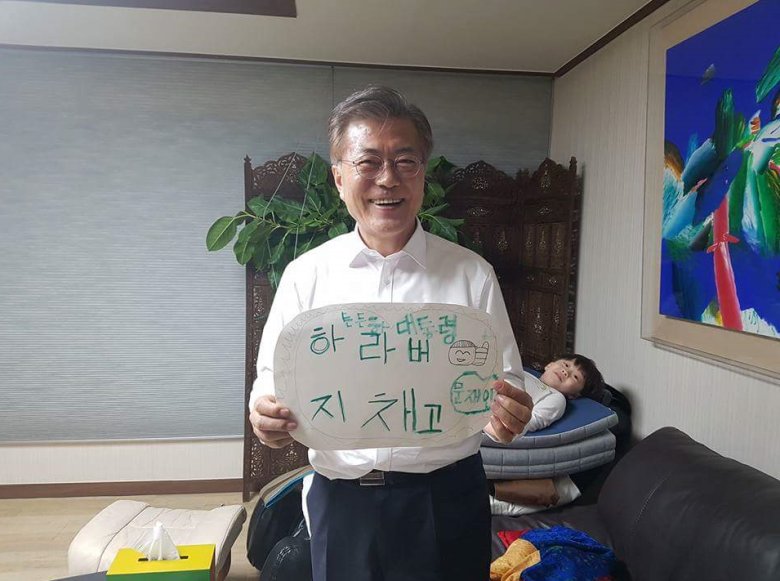 든든한 대통령
하라버
지 채고
문재인